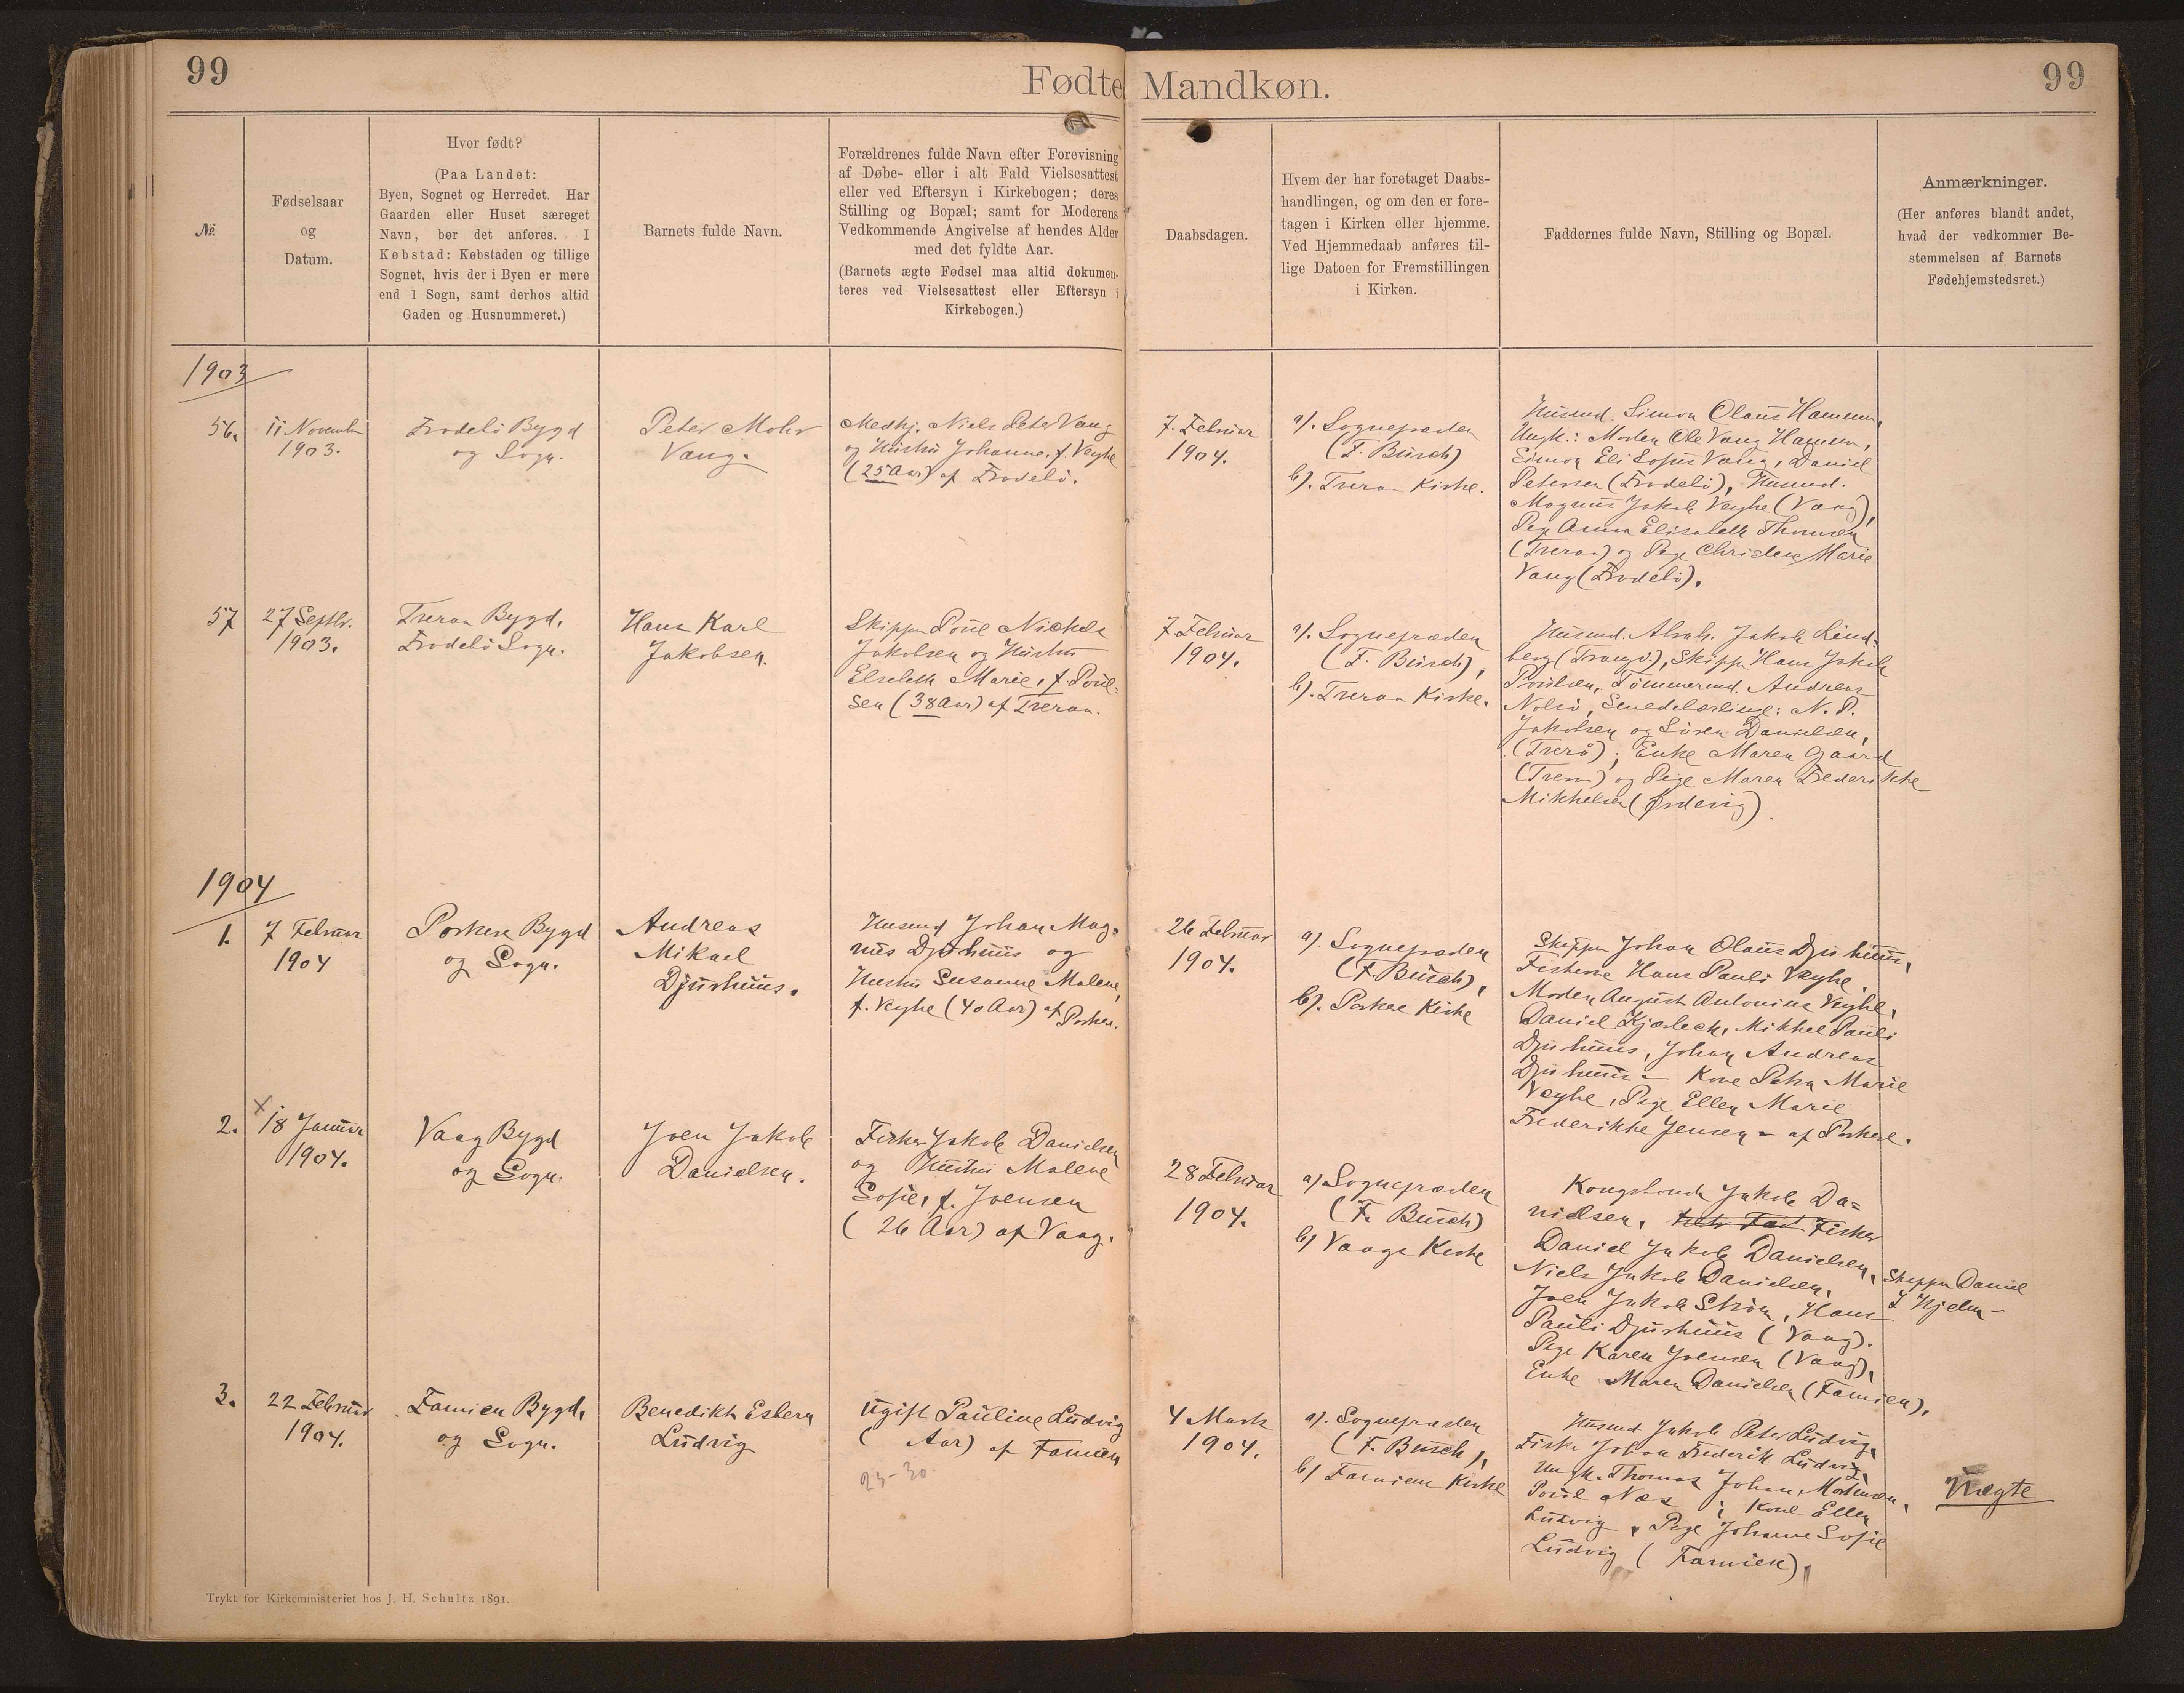 99
Fødte Mandkøn.
99
№.
Fødselsaar
og
Datum.
Hvor født?
(Paa Landet:
Byen, Sognet og Herredet. Har
Gaarden eller Huset særeget
Navn, bør det anføres. I
Købstad: Købstaden og tillige
Sognet, hvis der i Byen er mere
end 1 Sogn, samt derhos altid
Gaden og Husnummeret.)
Barnets fulde Navn.
Forældrenes fulde Navn efter Forevisning
af Døbe- eller i alt Fald Vielsesattest
eller ved Eftersyn i Kirkebogen; deres
Stilling og Bopæl; samt for Moderens
Vedkommende Angivelse af hendes Alder
med det fyldte Aar.
(Barnets ægte Fødsel maa altid dokumen-
teres ved Vielsesattest eller Eftersyn i
Kirkebogen.)
Daabsdagen.
Hvem der har foretaget Daabs-
handlingen, og om den er fore-
tagen i Kirken eller hjemme.
Ved Hjemmedaab anføres til-
lige Datoen for Fremstillingen
i Kirken.
Faddernes fulde Navn, Stilling og Bopæl.
Anmærkninger.
(Her anføres blandt andet,
hvad der vedkommer Be-
stemmelsen af Barnets
Fødehjemstedsret.)
1903
56.
11 Novembr
1903.
Frodebø Bygd
og Sogn.
Peter Mohr
Vang.
Medhj. Niels Peter Vang
og Hustru Johanne, f. Veyhe
(25 Aar) af Frodebø.
7. Februar
1904.
a). Sognepræsten
(F. Busch)
b). Tveraa Kirke.
Husmd. Simon Olaus Hammer,
Ungk.: Morten Ole Vang Hammer,
Simon Eli Sofus Vang, Daniel
Petersen (Frodebø), Husmd.
Magnus Jakob Veyhe (Vaag),
Pige Anna Elisabeth Thomsen
(Tveraa) og Pige Christine Marie
Vang (Frodebø).
57
27 Septbr.
1903.
Tveraa Bygd,
Frodebø Sogn.
Hans Karl
Jakobsen.
Skipper Poul Nichols
Jakobsen og Hustru
Elsebeth Marie, f. Poul-
sen (38 Aar) af Tveraa.
7 Februar
1904.
a). Sognepræsten
(F. Busch),
b). Tveraa Kirke.
Husmd. Abrah. Jakob Lind-
berg (Trangi.), Skipper Hans Jakob
Poulsen, Tømmermd. Andreas
Nolsø, Smedelærling: N. P.
Jakobsen og Søren Danielsen,
(Tverå); Enke Maren Gaard
(Tveraa) og Pige Maren Frederikke
Mikkelsen (Ørdevig).
1904
1.
7 Februar
1904
Porkere Bygd
og Sogn.
Andreas
Mikael
Djurhuus.
Husmd Johan Mag-
nus Djurhuus og
Hustru Susanne Malene,
f. Veyhe (40 Aar) af Porkere.
26 Februar
1904.
a). Sognepræsten
(F. Busch),
b). Porkere Kirke
Skipper Johan Olaus Djurhuus,
Fiskerne Hans Pauli Veyhe,
Morten August Antonius Veyhe,
Daniel Kjærbech, Mikkel Pauli
Djurhuus, Johan Andreas
Djurhuus - Kone Petra Marie
Veyhe, Pige Ellen Marie
Frederikke Jensen - af Porkere.
2.
x 18 Januar
1904.
Vaag Bygd
og Sogn.
Joen Jakob
Danielsen.
Fisker Jakob Danielsen
og Hustru Malene
Sofie, f. Joensen
(26 Aar) af Vaag.
28 Februar
1904.
a) Sognepræsten
(F. Busch)
b) Vaags Kirke
Kongsbonde Jakob Da-
nielsen, Fisker
Daniel Jakob Danielsen,
Niels Jakob Danielsen,
Joen Jakob Strøm, Hans
Pauli Djurhuus (Vaag).
Pige Karen Joensen (Vaag),
Enke Maren Danielsen (Famien).
Skipper Daniel
J Hjelm -
3.
22 Februar
1904.
Famien Bygd,
og Sogn.
Benedikt Esbern
Ludvig
Ugift Pauline Ludvig
( Aar) af Famien
23-30
4 Marts
1904.
a). Sognepræsten
(F. Busch),
b) Famiens Kirke
Husmd Jakob Peter Ludvig,
Fisker Johan Frederik Ludvig,
Ungk. Thomas Johan Mortensen,
Poul Næs; Kone Ellen
Ludvig, Pige Johanne Sofie
Ludvig (Famien).
Uægte
Trykt for Kirkeministeriet hos J. H. Schultz 1891.